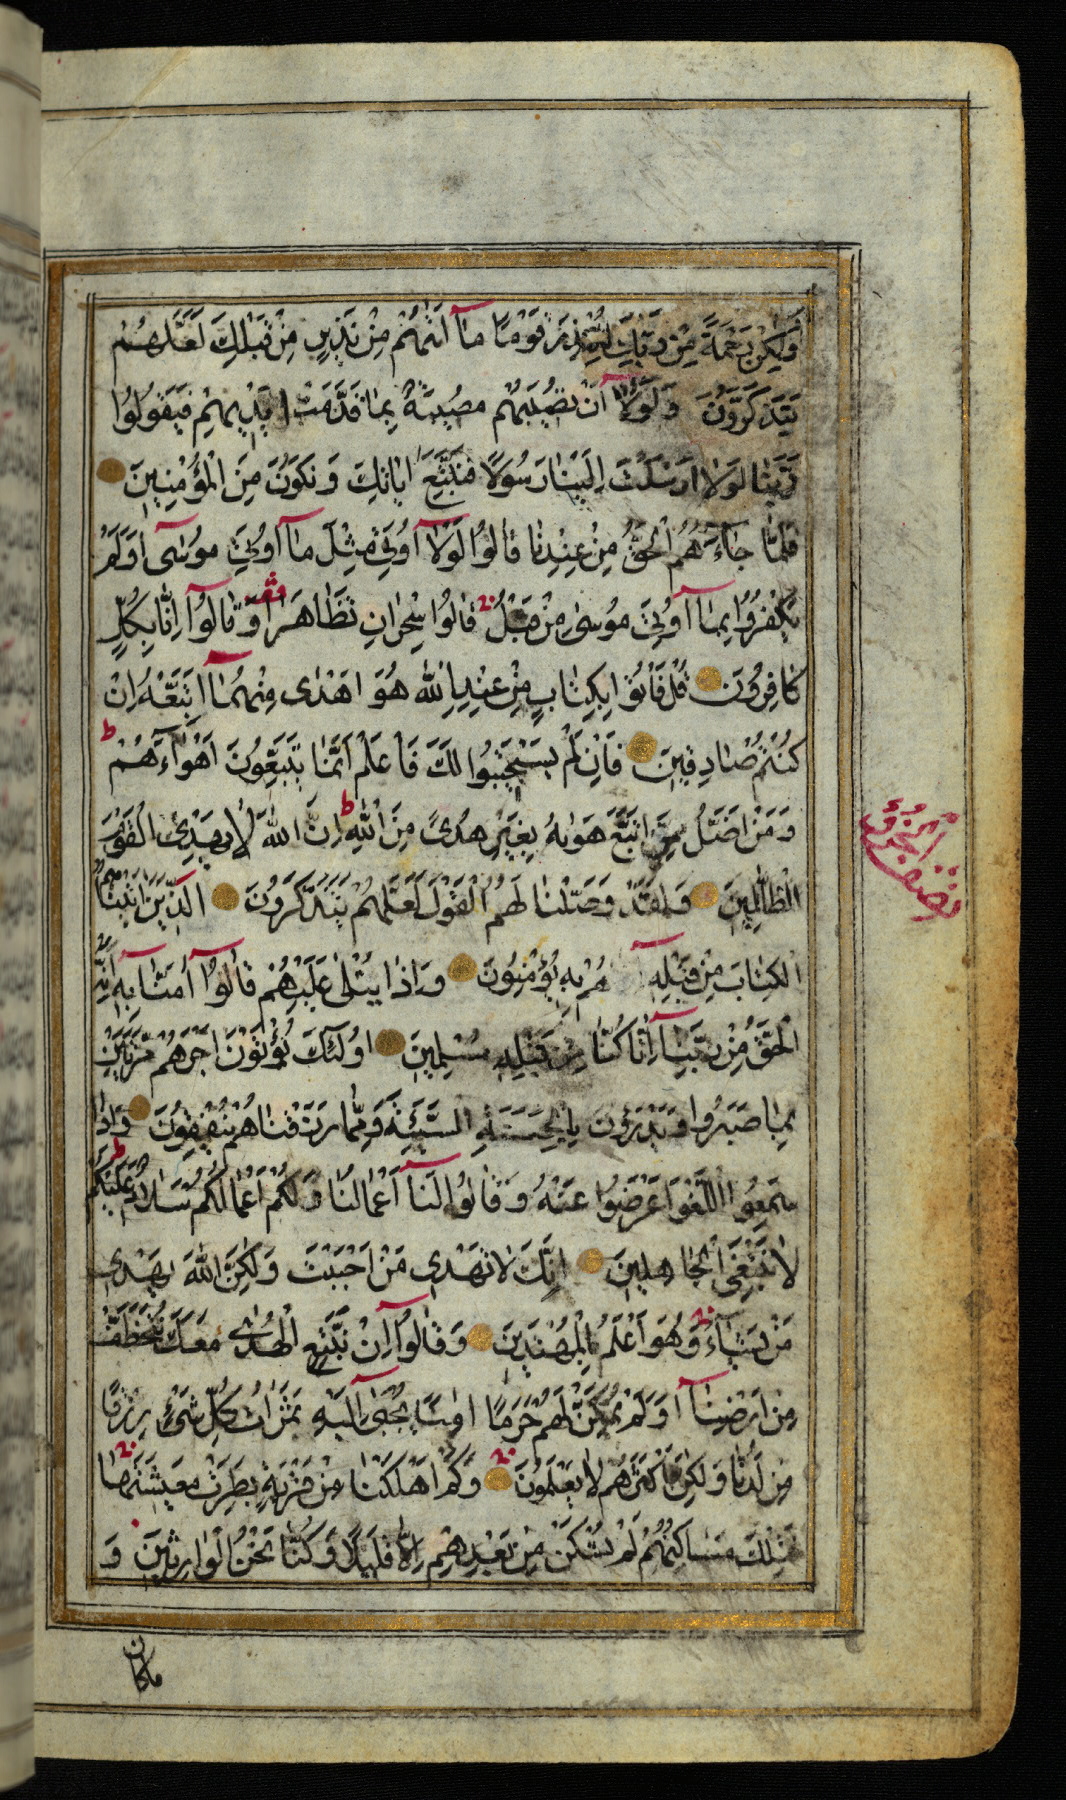 وَلٰكِنْ رَحْمَةً مِنْ رَبِّكَ لِتُنْذِرَ قَوْمًا مٰٓا اَتٰهُمْ مِنْ نَذِيرٍ مِنْ قَبْلِكَ لَعَلَّهُمْ
يَتَذَكَّرُونَ وَلَوْلٰٓا اَنْ تُصِيبَهُمْ مُصِيبَةٌ بِمٰا قَدَّمَتْ اَيْدِيهِمْ فَيَقُولُوا
رَبَّنٰا لَوْلٰا اَرْسَلْتَ اِلَيْنٰا رَسُولًا فَنَتَّبِعَ اٰيٰاتِكَ وَنَكُونَ مِنَ الْمُؤْمِنِينَ
فَلَمّٰا جٰٓاءَهُمُ الْحَقُّ مِنْ عِنْدِنٰا قٰالُوا لَوْلٰٓا اُوتِيَ مِثْلَ مٰٓا اُوتِيَ مُوسٰٓى اَوَلَمْ
يَكْفُرُوا بِمٰٓا اُوتِيَ مُوسٰى مِنْ قَبْلُ قٰالُوا سِحْرٰانِ تَظٰاهَرٰا وَقٰالُوٓا اِنّٰا بِكُلٍّ
كٰافِرُونَ قُلْ فَأْتُوا بِكِتٰابٍ مِنْ عِنْدِ اللّٰهِ هُوَ اَهْدٰى مِنْهُمٰٓا اَتَّبِعْهُ اِنْ
كُنْتُمْ صٰادِقِينَ فَاِنْ لَمْ يَسْتَجِيبُوا لَكَ فَاعْلَمْ اَنَّمٰا يَتَّبِعُونَ اَهْوٰٓاءَهُمْ ط
وَمَنْ اَضَلُّ مِمَّنِ اتَّبَعَ هَوٰيهُ بِغَيْرِ هُدًى مِنَ اللّٰهِ ط اِنَّ اللّٰهَ لٰا يَهْدِي الْقَوْمَ
الظّٰالِمِينَ وَلَقَدْ وَصَّلْنٰا لَهُمُ الْقَوْلَ لَعَلَّهُمْ يَتَذَكَّرُونَ اَلَّذِينَ اٰتَيْنٰاهُمُ
الْكِتٰابَ مِنْ قَبْلِهِ هُمْ بِهِ يُؤْمِنُونَ وَاِذٰا يُتْلٰى عَلَيْهِمْ قٰالُوٓا اٰمَنّٰا بِهِٓ اِنَّهُ
الْحَقُّ مِنْ رَبِّنٰٓا اِنّٰا كُنّٰا مِنْ قَبْلِهِ مُسْلِمِينَ اُولٰٓئِكَ يُؤْتَوْنَ اَجْرَهُمْ مَرَّتَيْنِ
بِمٰا صَبَرُوا وَيَدْرَؤُنَ بِالْحَسَنَةِ السَّيِّئَةَ وَمِمّٰا رَزَقْنٰاهُمْ يُنْفِقُونَ وَاِذٰا
سَمِعُوا اللَّغْوَ اَعْرَضُوا عَنْهُ وَقٰالُوا لَنٰٓا اَعْمٰالُنٰا وَلَكُمْ اَعْمٰالُكُمْ سَلٰامٌ عَلَيْكُمْ
لٰا نَبْتَغِي الْجٰاهِلِينَ اِنَّكَ لٰا تَهْدِي مَنْ اَحْبَبْتَ وَلٰكِنَّ اللّٰهَ يَهْدِي
مَنْ يَشٰٓاءُ وَهُوَ اَعْلَمُ بِالْمُهْتَدِينَ وَقٰالُوٓا اِنْ نَتَّبِعِ الْهُدٰى مَعَكَ نُتَخَطَّفْ
مِنْ اَرْضِنٰٓا اَوَلَمْ نُمَكِّنْ لَهُمْ حَرَمًا اٰمِنًا يُجْبٰٓى اِلَيْهِ ثَمَرٰاتُ كُلِّ شَيْءٍ رِزْقًا
مِنْ لَدُنّٰا وَلٰكِنَّ اَكْثَرَهُمْ لٰا يَعْلَمُونَ وَكَمْ اَهْلَكْنٰا مِنْ قَرْيَةٍ بَطِرَتْ مَعِيشَتَهٰا
فَتِلْكَ مَسٰاكِنُهُمْ لَمْ تُسْكَنْ مِنْ بَعْدِهِمْ اِلّٰا قَلِيلًا وَكُنّٰا نَحْنُ الْوٰارِثِينَ وَ
نصف الجزؤ
ماكان